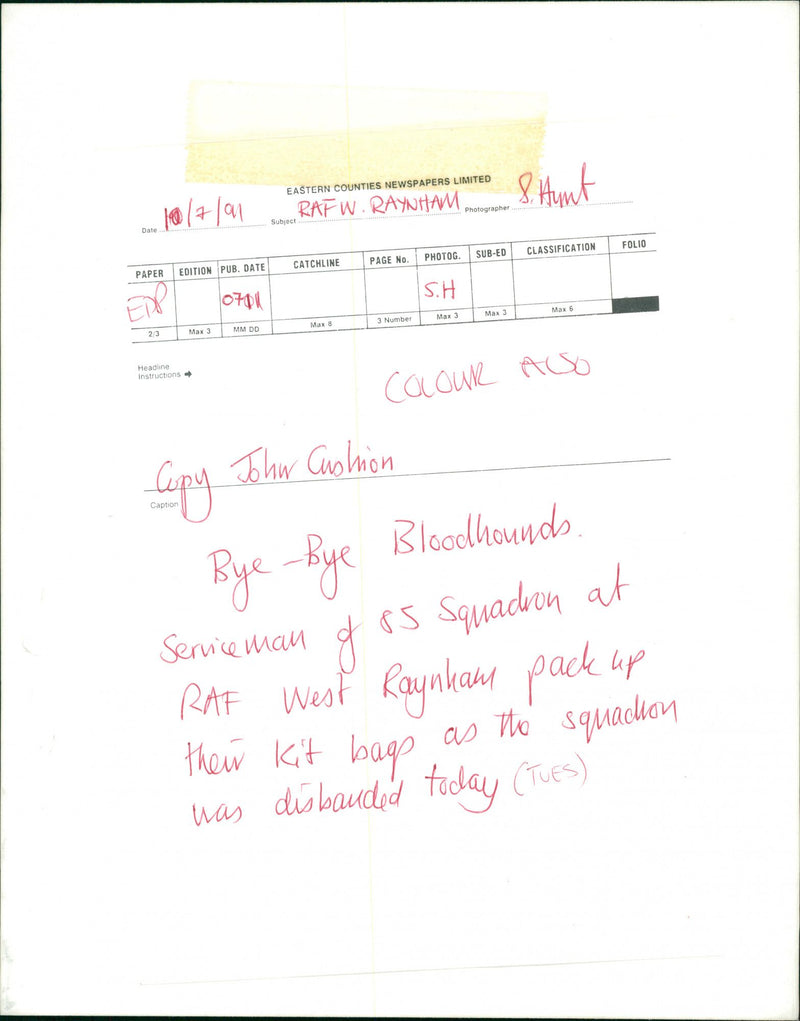 EASTERN COUNTIES NEWSPAPERS LIMITED
Date 10/7/91 Subject RAF W. RAYNHAM Photographer S. Hunt
PAPER EDITION PUB. DATE CATCHLINE PAGE No. PHOTOG. SUB-ED CLASSIFICATION FOLIO
EDP 0711 S.H
2/3 Max 3 MM DD Max 8 3 Number Max 3 Max 3 Max 6
Headline
Instructions
COLOUR ALSO
Copy John Cushion
Caption
Bye-Bye Bloodhounds.
Serviceman of 85 Squadron at
RAF West Raynham pack up
their kit bags as the squadron
was disbanded today (TUES)